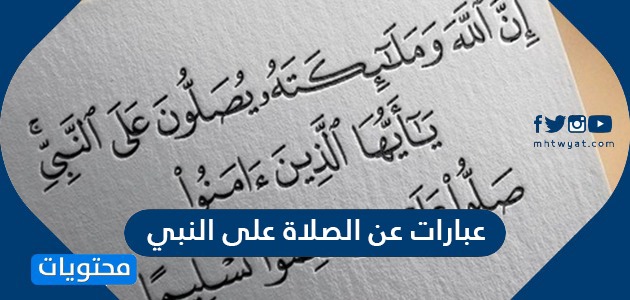 إِنَّ ٱللَّهَ وَمَلَٰٓئِكَتَهُۥ يُصَلُّونَ عَلَى ٱلنَّبِىِّ ۚ
يَٰٓأَيُّهَا ٱلَّذِينَ ءَامَنُوا۟
صَلُّوا۟
تَسْلِيمًا
mhtwyat.com
عبارات عن الصلاة على النبي
محتويات